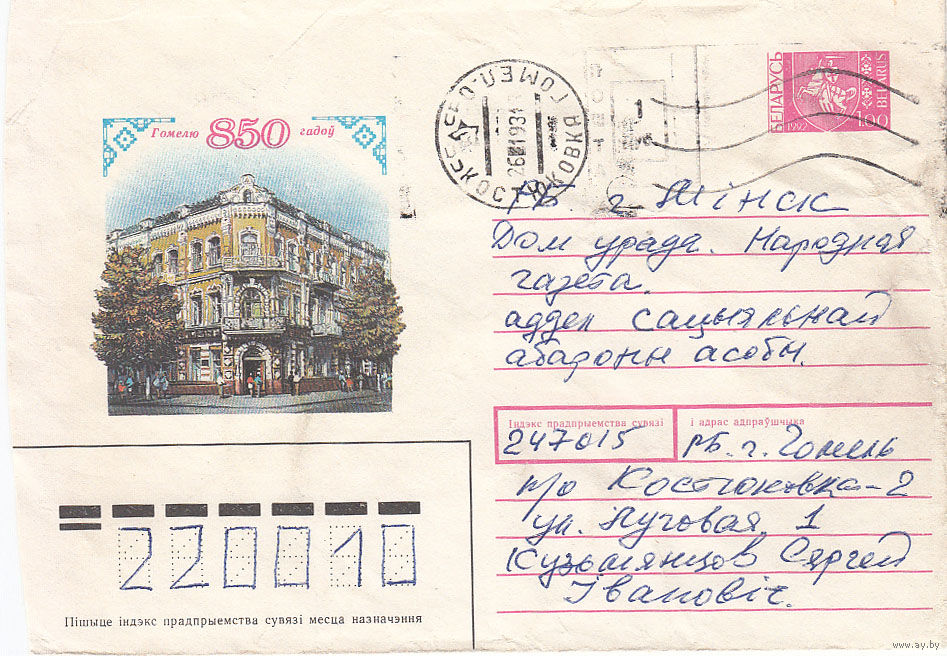 Гомелю 850 гадоў
ГОМЕЛ
КОСТЮКОВКА
БЕЛАРУСЬ
1992
1.00
BELARUS
РБ. г. Мінск
Дом урада. Народная
газета.
аддел сацыяльнай
абароны асобы.
Індэкс прадпрыемства сувязі
і адрас адпраўшчыка
247015
РБ. г. Гомель
п/о Костюковка-2
ул. Луговая, 1
Кузьмянцов Сяргей
Івановіч.
220010
Пішыце індэкс прадпрыемства сувязі месца назначэння
www.ay.by